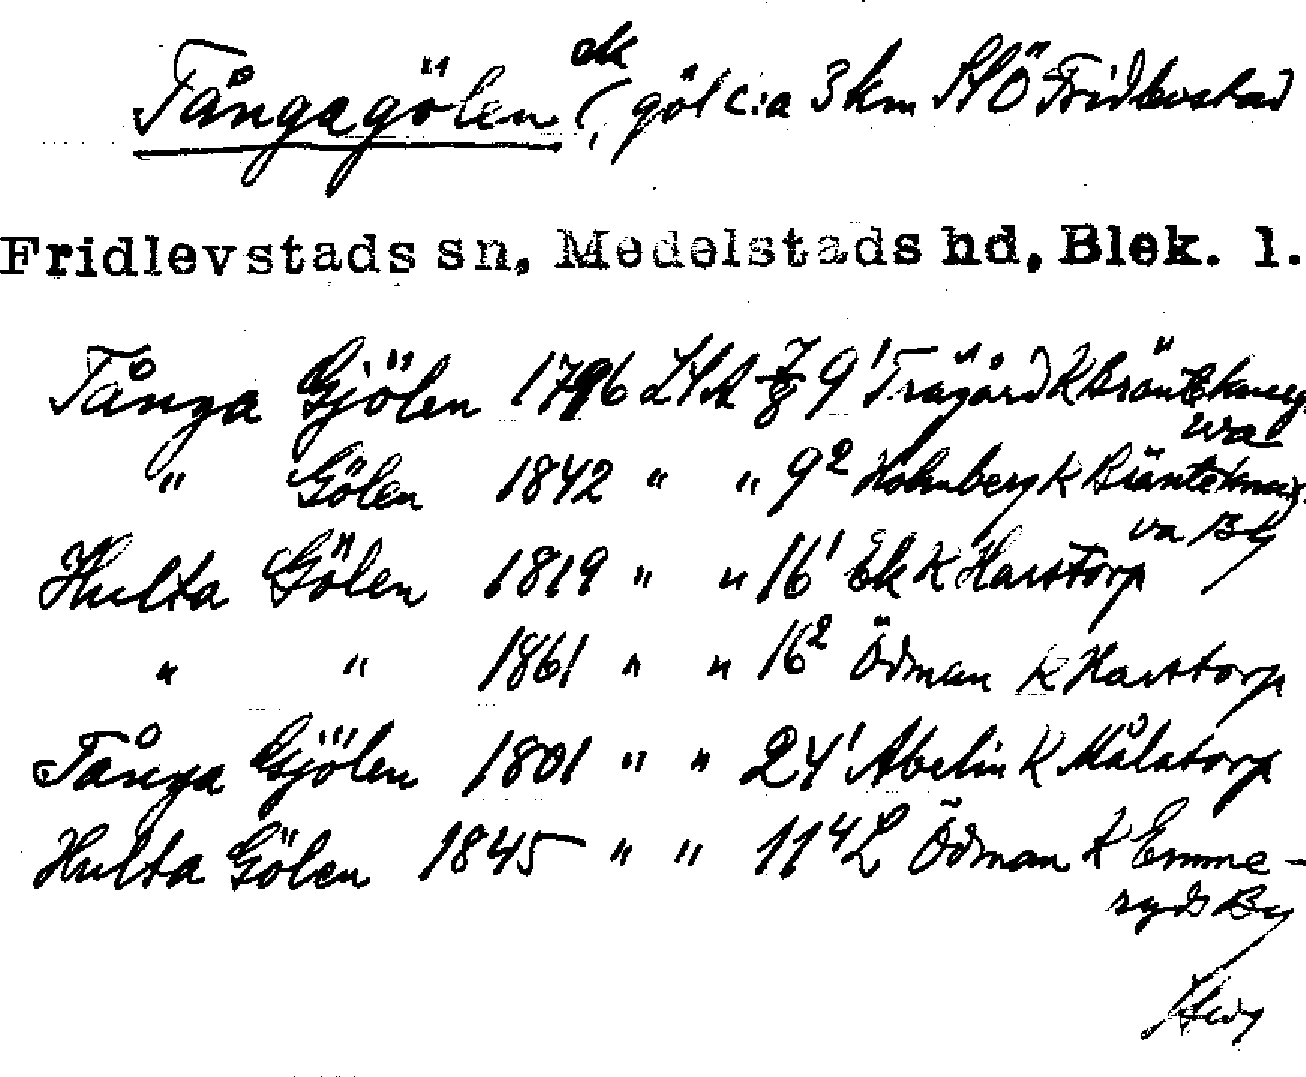 ek
Tångagölen (, göl c:a 3 km Ö Fridlevstad
Fridlevstads sn, Medelstads hd, Blek. l.
Tånga Gjölen 1796 LSA 9¹ Trägård K Bräntekneg-
wa
" Gölen 1842 " " 9² Holmberg K Bränteknag-
va By
Hulta Gölen 1819 " " 16¹ Ek K Harstorp
" " 1861 " " 16² Ödman K Harstorp
Tånga Gjölen 1801 " " 24¹ Abelin K Målatorp
Hulta Gölen 1845 " " 11⁴ L Ödman K Emme-
ryds By